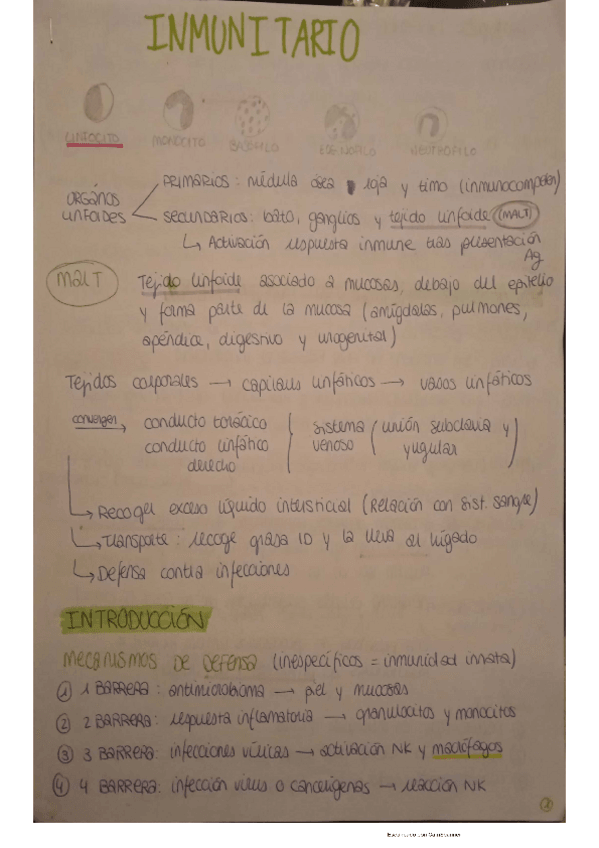 INMUNITARIO
LINFOCITO MONOCITO BASÓFILO EOSINÓFILO NEUTRÓFILO
ORGÁNOS LINFOIDES
PRIMARIOS: médula ósea roja y timo (inmunocompeten)
SECUNDARIOS: bazo, ganglios y tejido linfoide (MALT)
↳ Activación respuesta inmune tras presentación Ag
MALT Tejido linfoide asociado a mucosas, debajo del epitelio
y forma parte de la mucosa (amígdalas, pulmones,
apéndice, digestivo y urogenital)
Tejidos corporales → capilares linfáticos → vasos linfáticos
convergen → conducto torácico
conducto linfático
derecho
sistema
venoso
(unión subclavia y
yugular)
↳ Recoger exceso líquido intersticial (Relación con sist. sangre)
↳ Transporte: recoge grasa ID y la lleva al hígado
↳ Defensa contra infecciones
INTRODUCCIÓN
MECANISMOS DE DEFENSA (inespecíficos = inmunidad innata)
① 1 BARRERA: antimicrobiana → piel y mucosas
② 2 BARRERA: respuesta inflamatoria → granulocitos y monocitos
③ 3 BARRERA: infecciones víricas → activación NK y macrófagos
④ 4 BARRERA: infección virus o cancerígenas → reacción NK
Escaneado con CamScanner